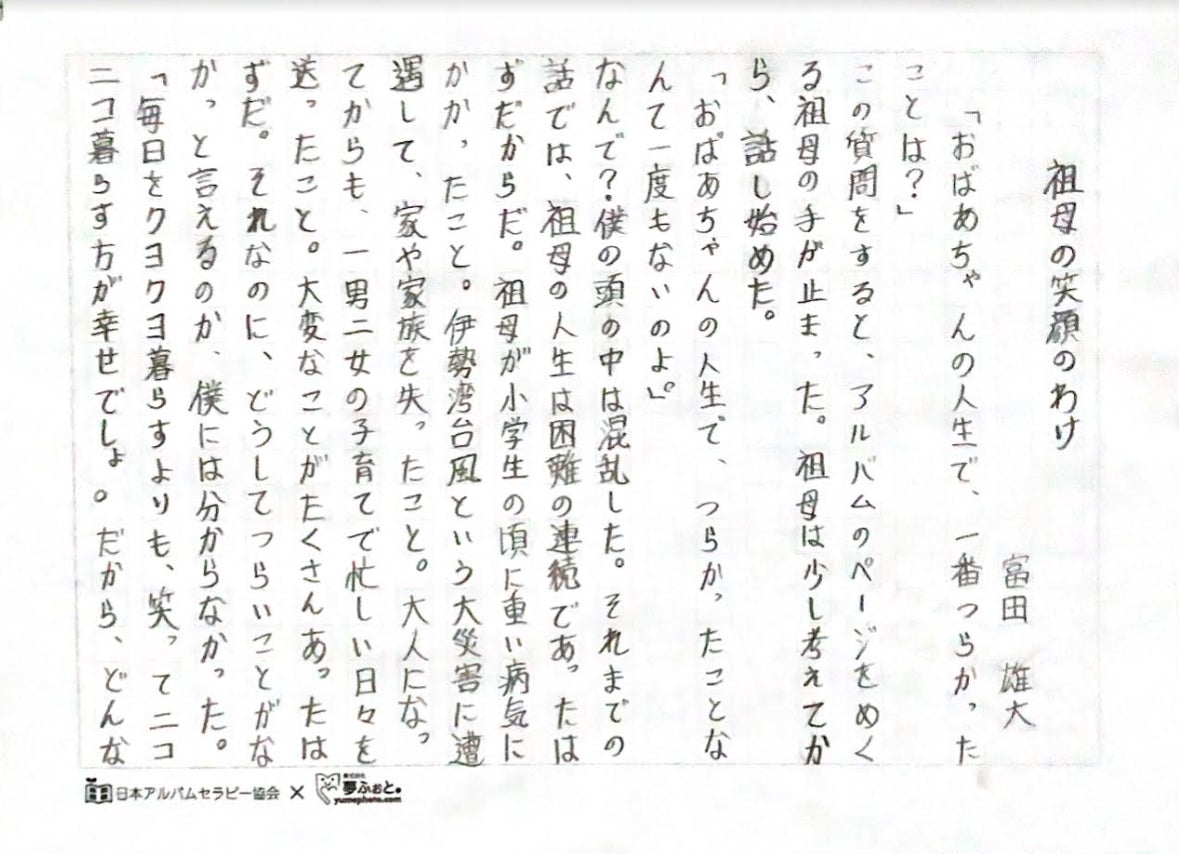 祖母の笑顔のわけ
富田 雄大
「おばあちゃんの人生で、一番つらかった
ことは？」
この質問をすると、アルバムのページをめく
る祖母の手が止まった。祖母は少し考えてか
ら、話し始めた。
「おばあちゃんの人生で、つらかったことな
んて一度もないのよ。」
なんで？僕の頭の中は混乱した。それまでの
話では、祖母の人生は困難の連続であったは
ずだからだ。祖母が小学生の頃に重い病気に
かかったこと。伊勢湾台風という大災害に遭
遇して、家や家族を失ったこと。大人になっ
てからも、一男二女の子育てで忙しい日々を
送ったこと。大変なことがたくさんあったは
ずだ。それなのに、どうしてつらいことがな
かっと言えるのか、僕には分からなかった。
「毎日をクヨクヨ暮らすよりも、笑ってニコ
ニコ暮らす方が幸せでしょ。だから、どんな
日本アルバムセラピー協会 × 株式会社 夢ふぉと。
yumephoto.com